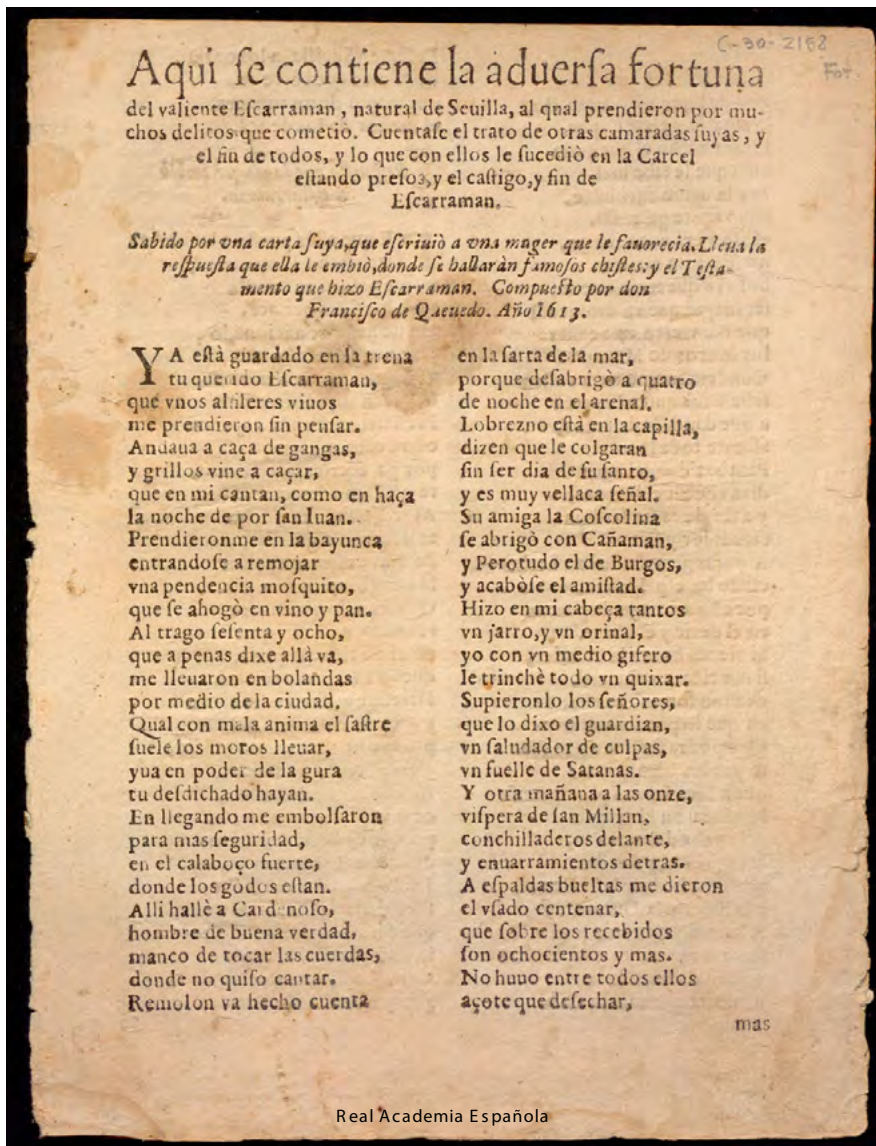 C-30-2158
For.
Aqui ſe contiene la aduerſa fortuna
del valiente Eſcarraman, natural de Seuilla, al qual prendieron por mu-
chos delitos que cometiò. Cuentaſe el trato de otras camaradas ſuyas, y
el fin de todos, y lo que con ellos le ſucediò en la Carcel
eſtando preſos, y el caſtigo, y fin de
Eſcarraman.
Sabido por vna carta ſuya, que eſcriuiò a vna muger que le fauorecia. Lleua la
reſpueſta que ella le embiò, donde ſe hallaràn famoſos chiſtes: y el Teſta-
mento que hizo Eſcarraman. Compueſto por don
Franciſco de Qaeuedo. Año 1613.
YA eſtà guardado en la trena
tu querido Eſcarraman,
que vnos alfileres viuos
me prendieron ſin penſar.
Andaua a caça de gangas,
y grillos vine a caçar,
que en mi cantan, como en haça
la noche de por ſan Iuan.
Prendieronme en la bayunca
entrandoſe a remojar
vna pendencia moſquito,
que ſe ahogò en vino y pan.
Al trago ſeſenta y ocho,
que a penas dixe allà va,
me lleuaron en bolandas
por medio de la ciudad.
Qual con mala anima el ſaſtre
ſuele los moros lleuar,
yua en poder de la gura
tu deſdichado hayan.
En llegando me embolſaron
para mas ſeguridad,
en el calaboço fuerte,
donde los godos eſtan.
Alli hallè a Cardenoſo,
hombre de buena verdad,
manco de tocar las cuerdas,
donde no quiſo cantar.
Remolon va hecho cuenta
en la ſarta de la mar,
porque deſabrigò a quatro
de noche en el arenal.
Lobrezno eſtà en la capilla,
dizen que le colgaran
ſin ſer dia de ſu ſanto,
y es muy vellaca ſeñal.
Su amiga la Coſcolina
ſe abrigò con Cañaman,
y Perotudo el de Burgos,
y acabòſe el amiſtad.
Hizo en mi cabeça tantos
vn jarro, y vn orinal,
yo con vn medio gifero
le trinchè todo vn quixar.
Supieronlo los ſeñores,
que lo dixo el guardian,
vn ſaludador de culpas,
vn fuelle de Satanas.
Y otra mañana a las onze,
viſpera de ſan Millan,
conchilladeros delante,
y enuarramientos detras.
A eſpaldas bueltas me dieron
el vſado centenar,
que ſobre los recebidos
ſon ochocientos y mas.
No huuo entre todos ellos
açote que deſechar,
mas
Real Academia Española